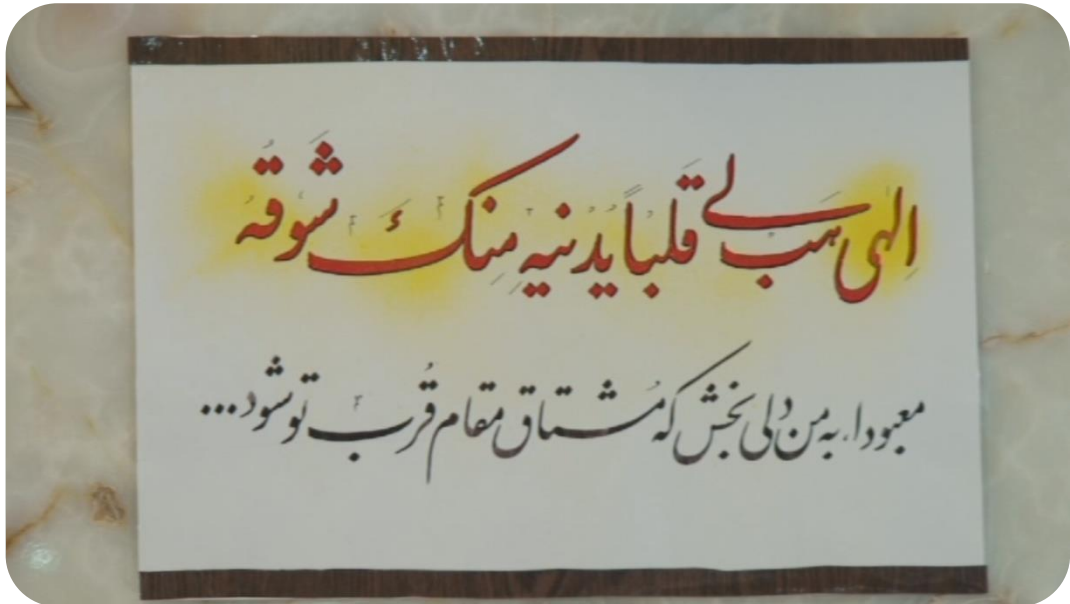 الهی هب لی قلبا یدنیه منک شوقه
معبودا، به من دلی بخش که مشتاق مقام قرب تو شود...